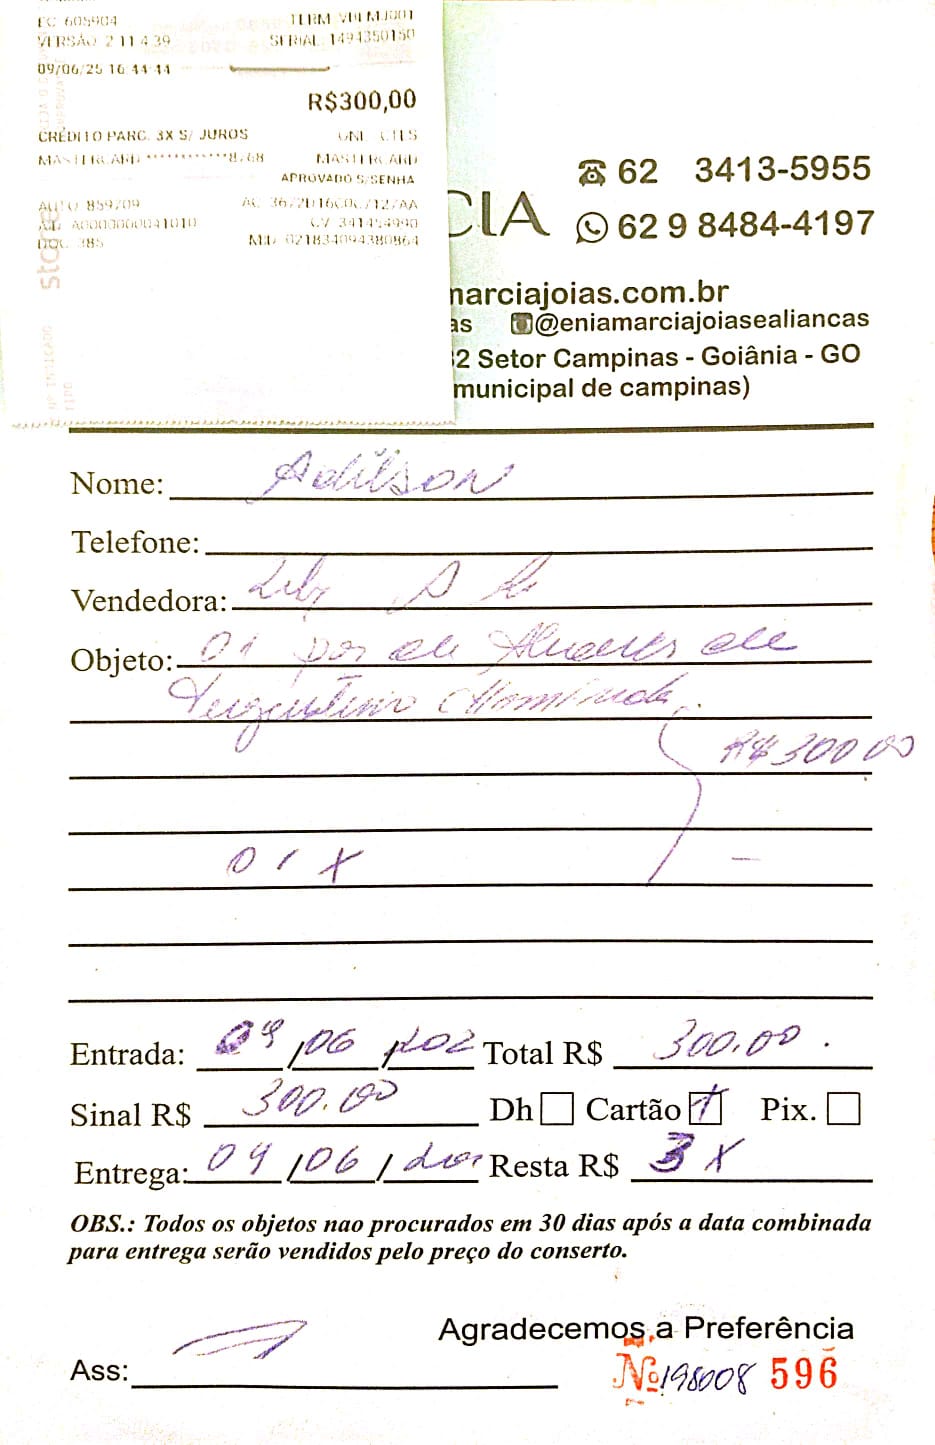 EC 605904 TERM
VERSÃO 2 11 4 39 SERIAL 1494350150
09/06/25 16 44 44
R$300,00
CRÉDITO PARC. 3X S/ JUROS
MASTERCARD ************8768 MASTERCARD
APROVADO S/SENHA
AUTO 859709
AID A0000000041010 CV 341454990
DOC 385
stone
CIA
62 3413-5955
62 9 8484-4197
marciajoias.com.br
as @eniamarciajoiasealiancas
2 Setor Campinas - Goiânia - GO
municipal de campinas)
Nome: Adilson
Telefone:
Vendedora:
Objeto: 01 par de de
R$ 300 00
01 X
Entrada: 09/06/202 Total R$ 300.00
Sinal R$ 300.00 Dh Cartão X Pix.
Entrega: 09/06/ Resta R$ 3 X
OBS.: Todos os objetos nao procurados em 30 dias após a data combinada
para entrega serão vendidos pelo preço do conserto.
Agradecemos a Preferência
Ass: Nº 198008 596